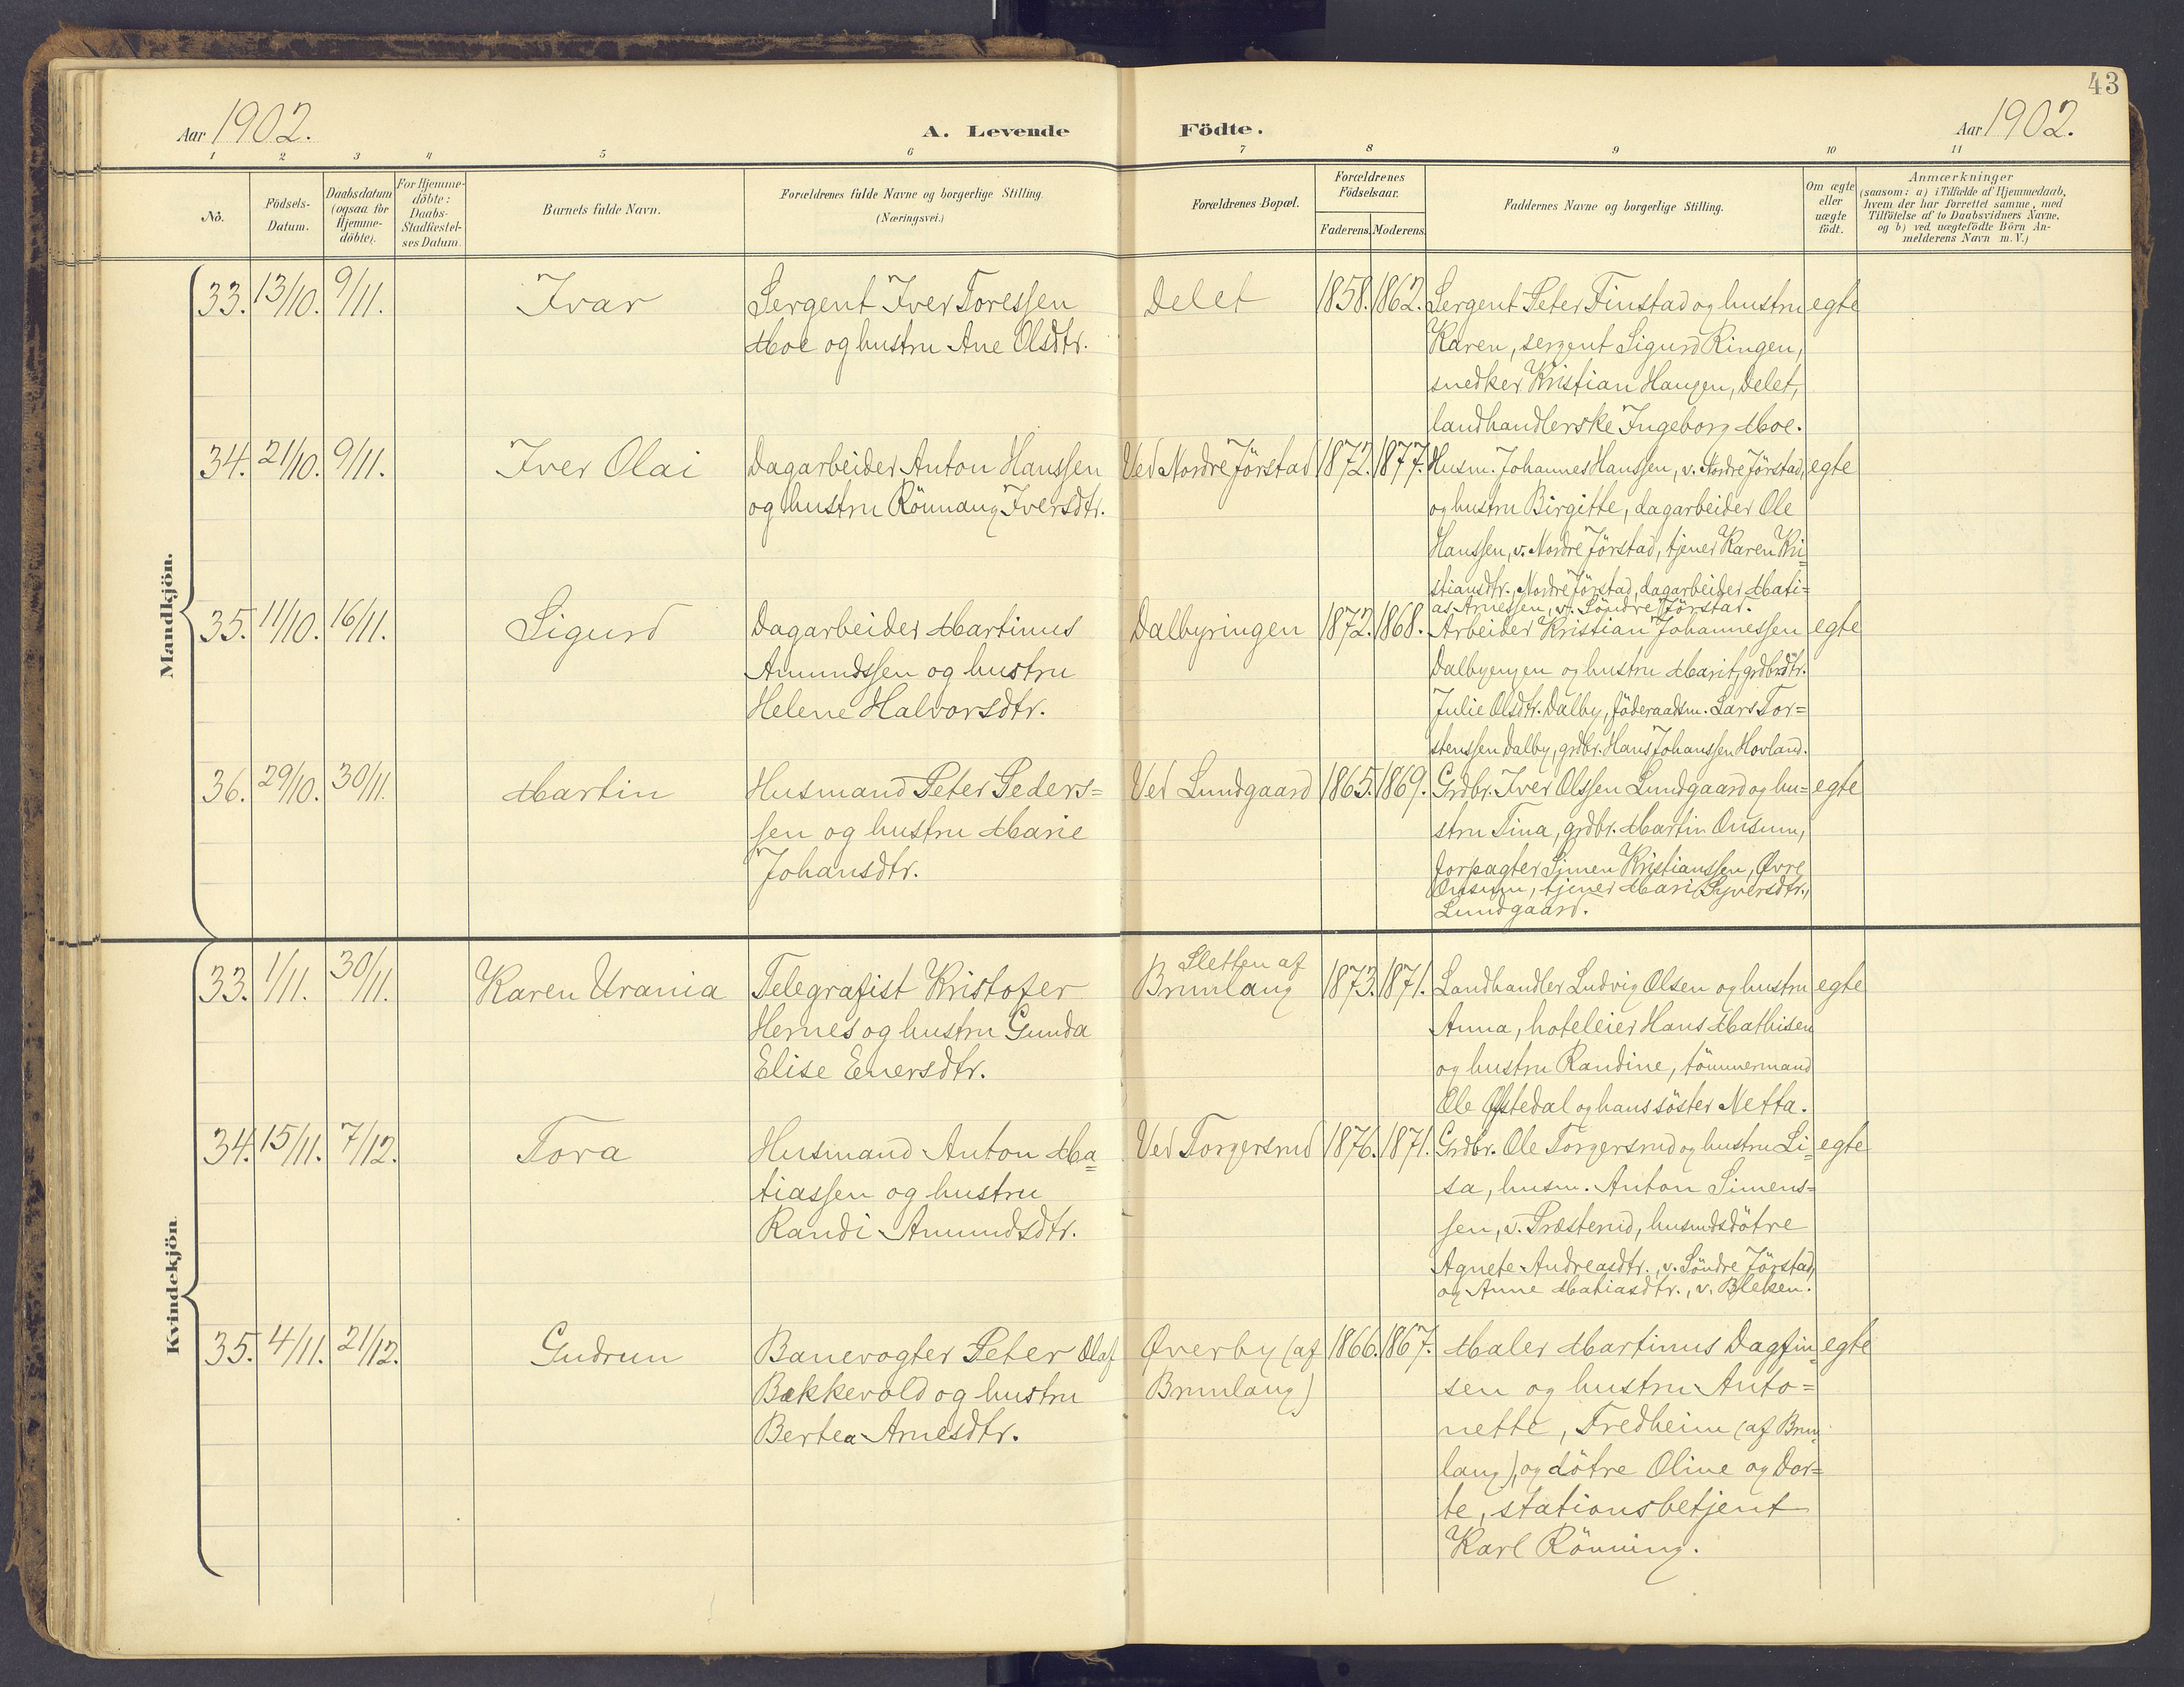 43
Aar 1902. A. Levende Födte. Aar 1902.
1 2 3 4 5 6 7 8 9 10 11
No.
Födsels-
Datum.
Daabsdatum
(ogsaa for
Hjemme-
döbte).
For Hjemme-
döbte:
Daabs-
Stadfæstel-
ses Datum.
Barnets fulde Navn.
Forældrenes fulde Navne og borgerlige Stilling.
(Næringsvei.)
Forældrenes Bopæl.
Forældrenes
Födselsaar.
Faderens. Moderens.
Faddernes Navne og borgerlige Stilling.
Om ægte
eller
uægte
födt.
Anmærkninger
(saasom: a) i Tilfælde af Hjemmedaab,
hvem der har forrettet samme, med
Tilföielse af to Daabsvidners Navne,
og b) ved uægtefödte Börn An-
melderens Navn m.V.)
Mandkjön.
33. 13/10. 9/11. Ivar
Sergent Iver Toresſen
Moe og hustru Ane Olsdtr.
Delet 1858. 1862.
Sergent Peter Finstad og hustru
Karen, sergent Sigurd Ringen,
snedker Kristian Haugen, Delet,
landhandlerske Ingeborg Moe.
egte
34. 21/10. 9/11. Iver Olai
Dagarbeider Anton Hansſen
og hustru Rönnaug Iversdtr.
Ved Nordre Jörstad 1872. 1877.
Husm. Johannes Hansſen, v. Nordre Jörstad,
og hustru Birgitte, dagarbeider Ole
Hansſen, v. Nordre Jörstad, tjener Karen Kri-
stiansdtr. Nordre Jörstad, dagarbeider Mati=
as Arnesſen, v. Söndre Jörstad.
egte
35. 11/10. 16/11. Sigurd
Dagarbeider Martinus
Amundsſen og hustru
Helene Halvorsdtr.
Dalbyringen 1872. 1868.
Arbeider Kristian Johannesſen
Dalbyengen og hustru Marit, grdbrdtr.
Julie Olsdtr. Dalby, föderaadsm. Lars Tor=
stensſen Dalby, grdbr. Hans Johansſen Hovland.
egte
36. 29/10. 30/11. Martin
Husmand Peter Peders=
ſen og hustru Marie
Johansdtr.
Ved Lundgaard 1865. 1869.
Grdbr. Iver Olsſen Lundgaard og hu=
stru Tina, grdbr. Martin Onsum,
forpagter Simen Kristiansſen, Øvre
Onsum, tjener Mari Syversdtr.,
Lundgaard.
egte
Kvindekjön.
33. 1/11. 30/11. Karen Urania
Telegrafist Kristofer
Hernes og hustru Gunda
Elise Enersdtr.
Sletten af
Brunlaug 1873. 1871.
Landhandler Ludvig Olsen og hustru
Anna, hoteleier Hans Mathisen
og hustru Randine, tömmermand
Ole Ofstedal og hans söster Netta.
egte
34. 15/11. 7/12. Tora
Husmand Anton Ma=
tiasſen og hustru
Randi Amundsdtr.
Ved Torgersrud 1876. 1871.
Grdbr. Ole Torgersrud og hustru Li-
sa, husm. Anton Simens=
ſen, v. Præsterud, husmdsdötre
Agnete Andreasdtr., v. Söndre Jörstad,
og Anne Matiasdtr., v. Bleken.
egte
35. 4/11. 21/12. Gudrun
Banevogter Peter Olaf
Bækkevold og hustru
Bertea Arnesdtr.
Øverby (af
Brunlaug) 1866. 1867.
Maler Martinus Dagfin-
sen og hustru Anto=
nette, Fredheim (af Brun-
laug), og dötre Oline og Dor=
te, stationsbetjent
Karl Rönning.
egte